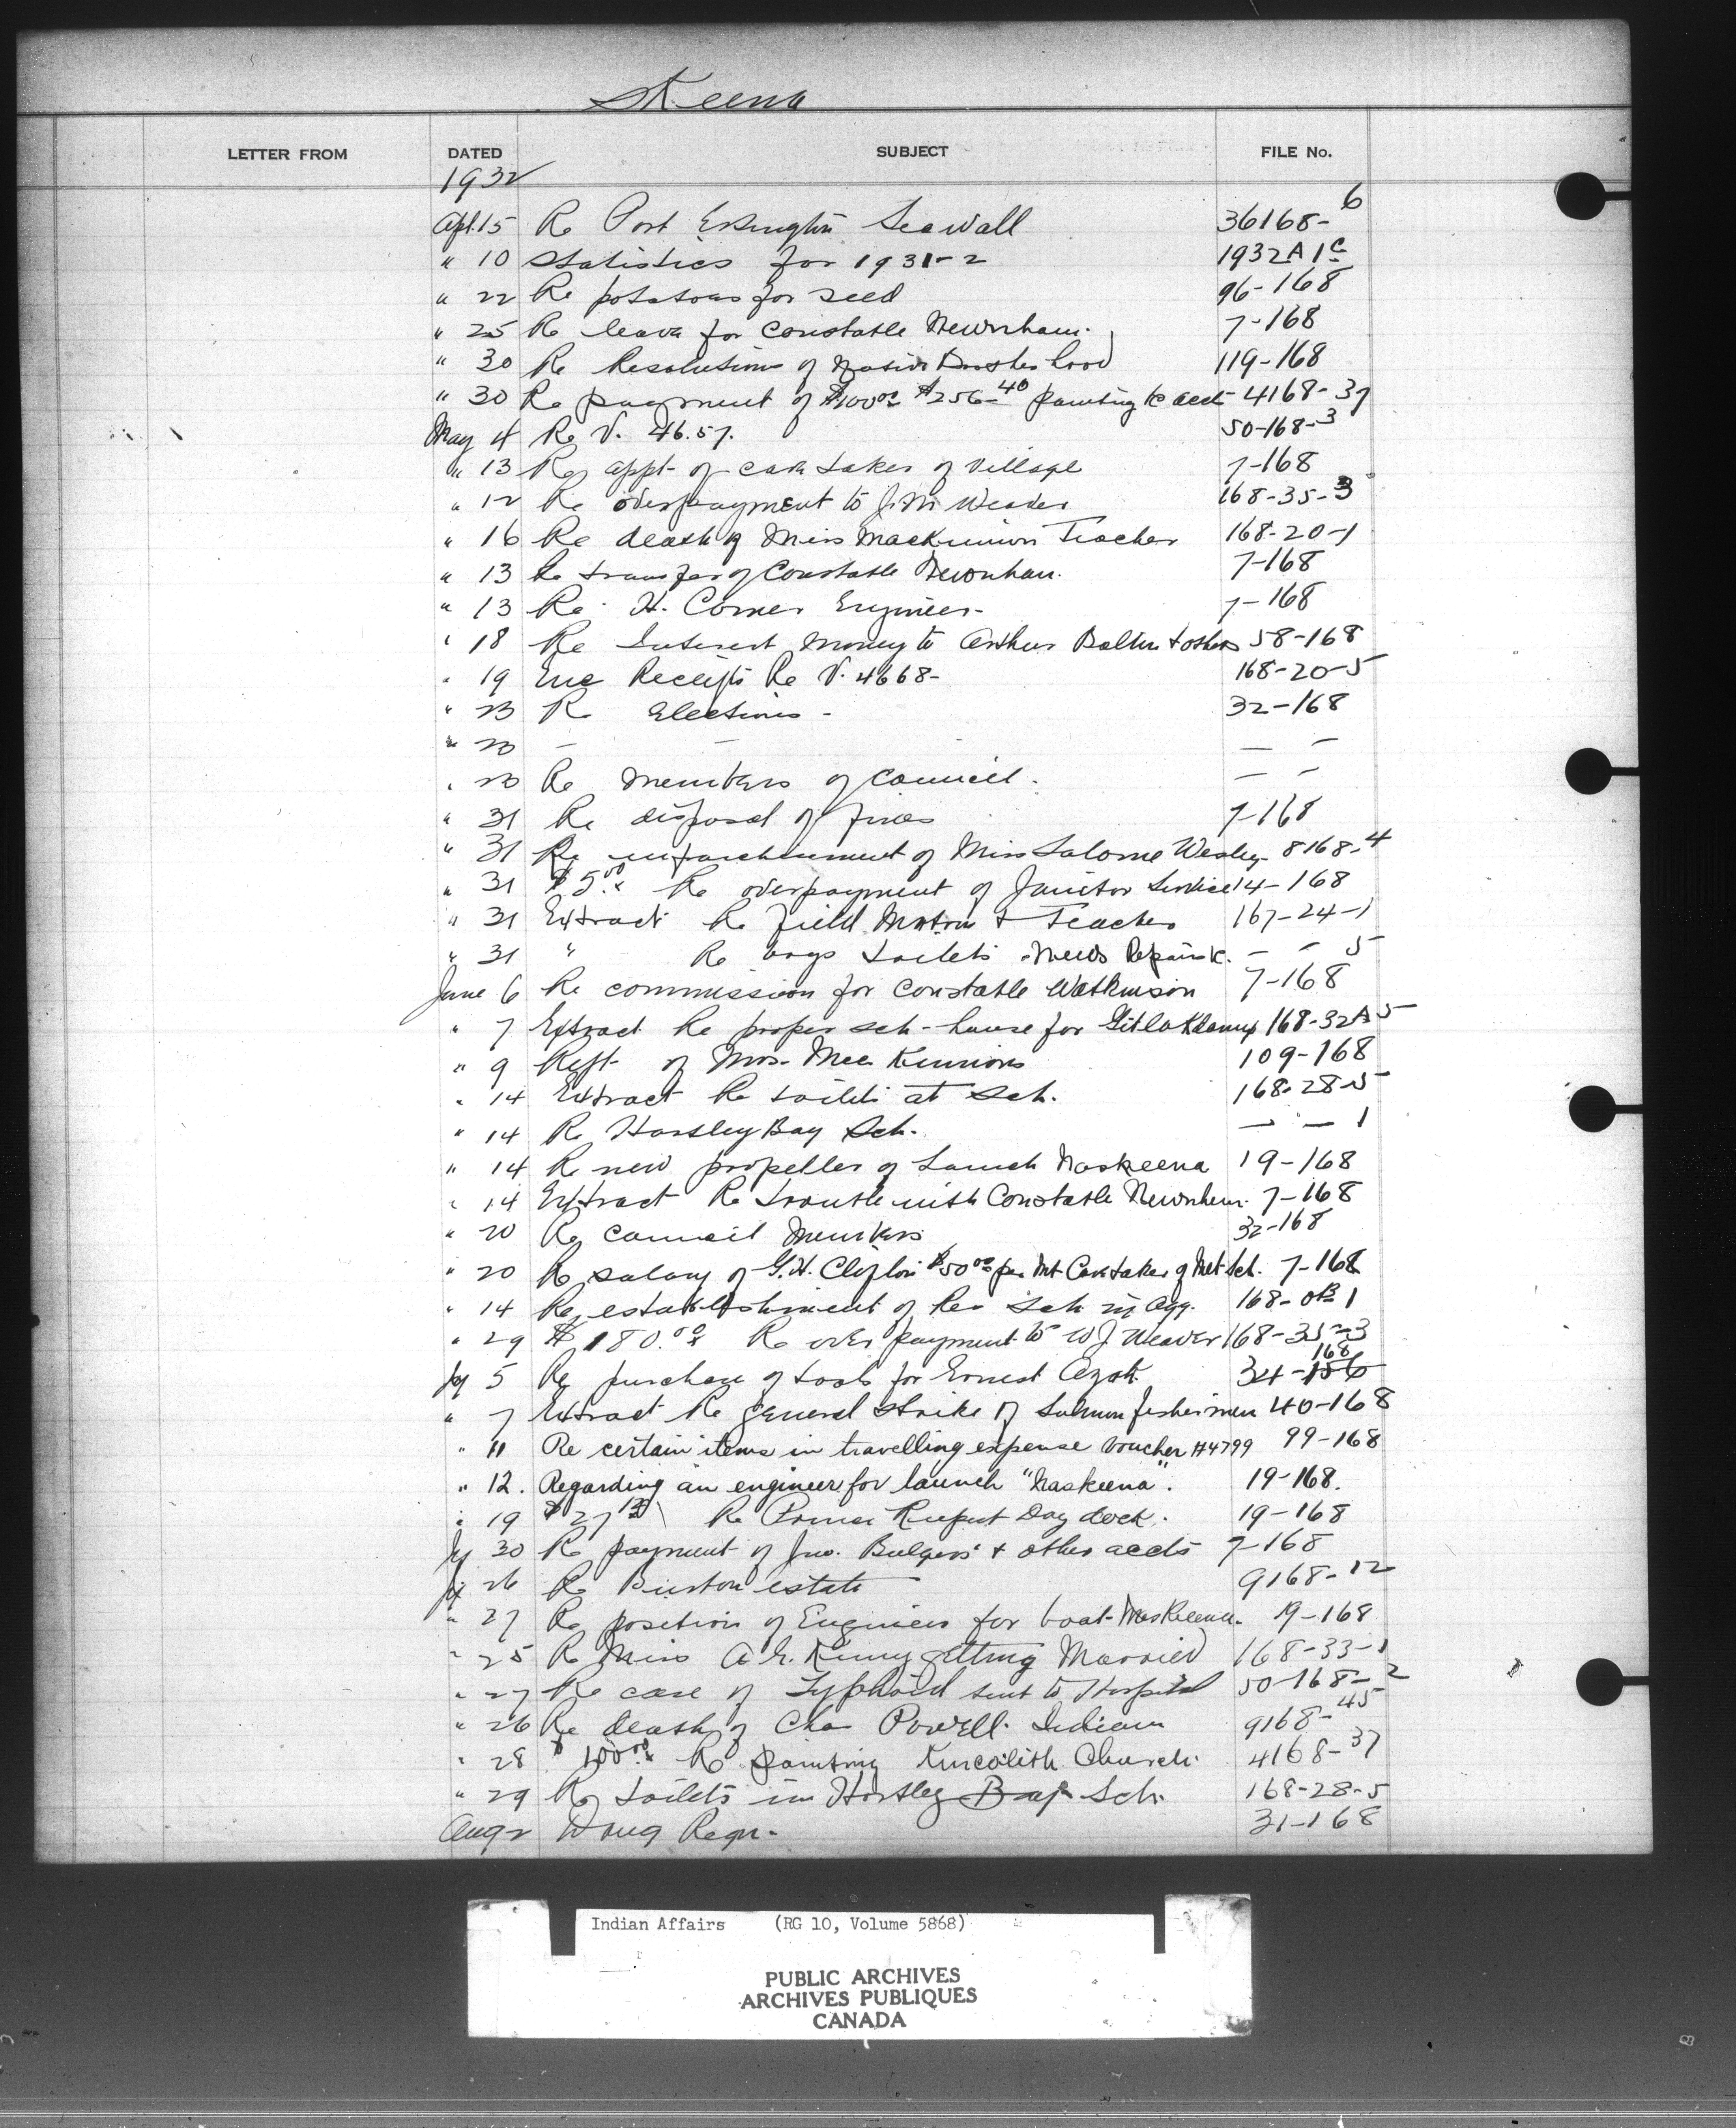 Skeena
LETTER FROM DATED SUBJECT FILE No.
1932
Apl. 15 Re Port Essington Seawall 36168-6
" 10 Statistics for 1931-2 1932A1c
" 22 Re potatoes for seed 96-168
" 25 Re leave for Constable Newnham. 7-168
" 30 Re Resolutions of Native Brotherhood 119-168
" 30 Re payment of $100.00 $256.40 painting &c acct 4168-37
May 4 Re V. 46.57. 50-168-3
" 13 Re appt. of care taker of village 7-168
" 12 Re overpayment to Weaver 168-35-3
" 16 Re death of Miss MacKinnon Teacher 168-20-1
" 13 Re transfer of Constable Newnham. 7-168
" 13 Re H. Comer Engineer- 7-168
" 18 Re Interest money to Arthur Bolton & others 58-168
" 19 Enc Receipts Re V. 4668- 168-20-5
" 23 Re Elections - 32-168
" 23 - - — —
" 23 Re members of Council. — —
" 31 Re disposal of fines 7-168
" 31 Re enfranchisement of Miss Salome Wesley 8168-4
" 31 $5.00 Re overpayment of Janitor Service 14-168
" 31 Extract Re Field Matron & Teacher 167-24-1
" 31 " Re boys toilets needs Repairs &c. — — 5
June 6 Re commission for Constable Watkinson 7-168
" 7 Extract Re proper sch-house for Gitlakdamix 168-32A5
" 9 Rept. of Mrs. MacKinnons 109-168
" 14 Extract Re toilets at Sch. 168-28-5
" 14 Re Hartley Bay Sch. — — 1
" 14 Re new propeller of Launch Naskeena 19-168
" 14 Extract Re trouble with Constable Newnham. 7-168
" 20 Re Council Members 32-168
" 20 Re salary of G.H. Clifton $50.00 per Mt Caretaker of Met Sch. 7-168
" 14 Re establishment of Res Sch in Agy. 168-0B1
" 29 $180.00 Re over payment to W J Weaver 168-35-3
Jy 5 Re purchase of tools for Ernest Azak 34-156 168
" 7 Extract Re general strike of Salmon fishermen 40-168
" 11 Re certain items in travelling expense voucher #4799 99-168
" 12. Regarding an engineer for launch "Naskeena". 19-168.
" 19 $27 Re Prince Rupert Dry dock. 19-168
Jy 30 Re payment of Jno. Bulgers & other accts 7-168
Jy 26 Re Burton estate 9168-12
" 27 Re position of Engineer for boat Naskeena. 19-168
" 25 Re Miss A. E. Kenny getting Married 168-33-1
" 27 Re case of Typhoid sent to Hospital 50-168-2
" 26 Re death of Chas Powell. Indian 9168-45
" 28 $100.00 Re painting Kincolith Church. 4168-37
" 29 Re toilets in Hartley Bay Sch. 168-28-5
Aug 2 Drug Reqn. 31-168
Indian Affairs (RG 10, Volume 5868)
PUBLIC ARCHIVES
ARCHIVES PUBLIQUES
CANADA